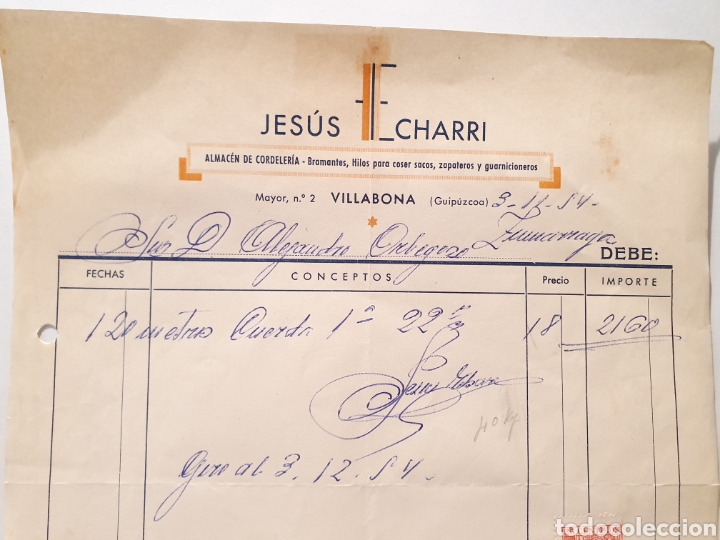 JESÚS ECHARRI
ALMACÉN DE CORDELERÍA - Bramantes, Hilos para coser sacos, zapateros y guarnicioneros
Mayor, n.º 2 VILLABONA (Guipúzcoa) 3-12-54-
D Alejandro Zumarraga DEBE:
FECHAS CONCEPTOS Precio IMPORTE
120 metros Cuerda 1ª 22 18 2160
Giro al 3.12.54.
todocoleccion